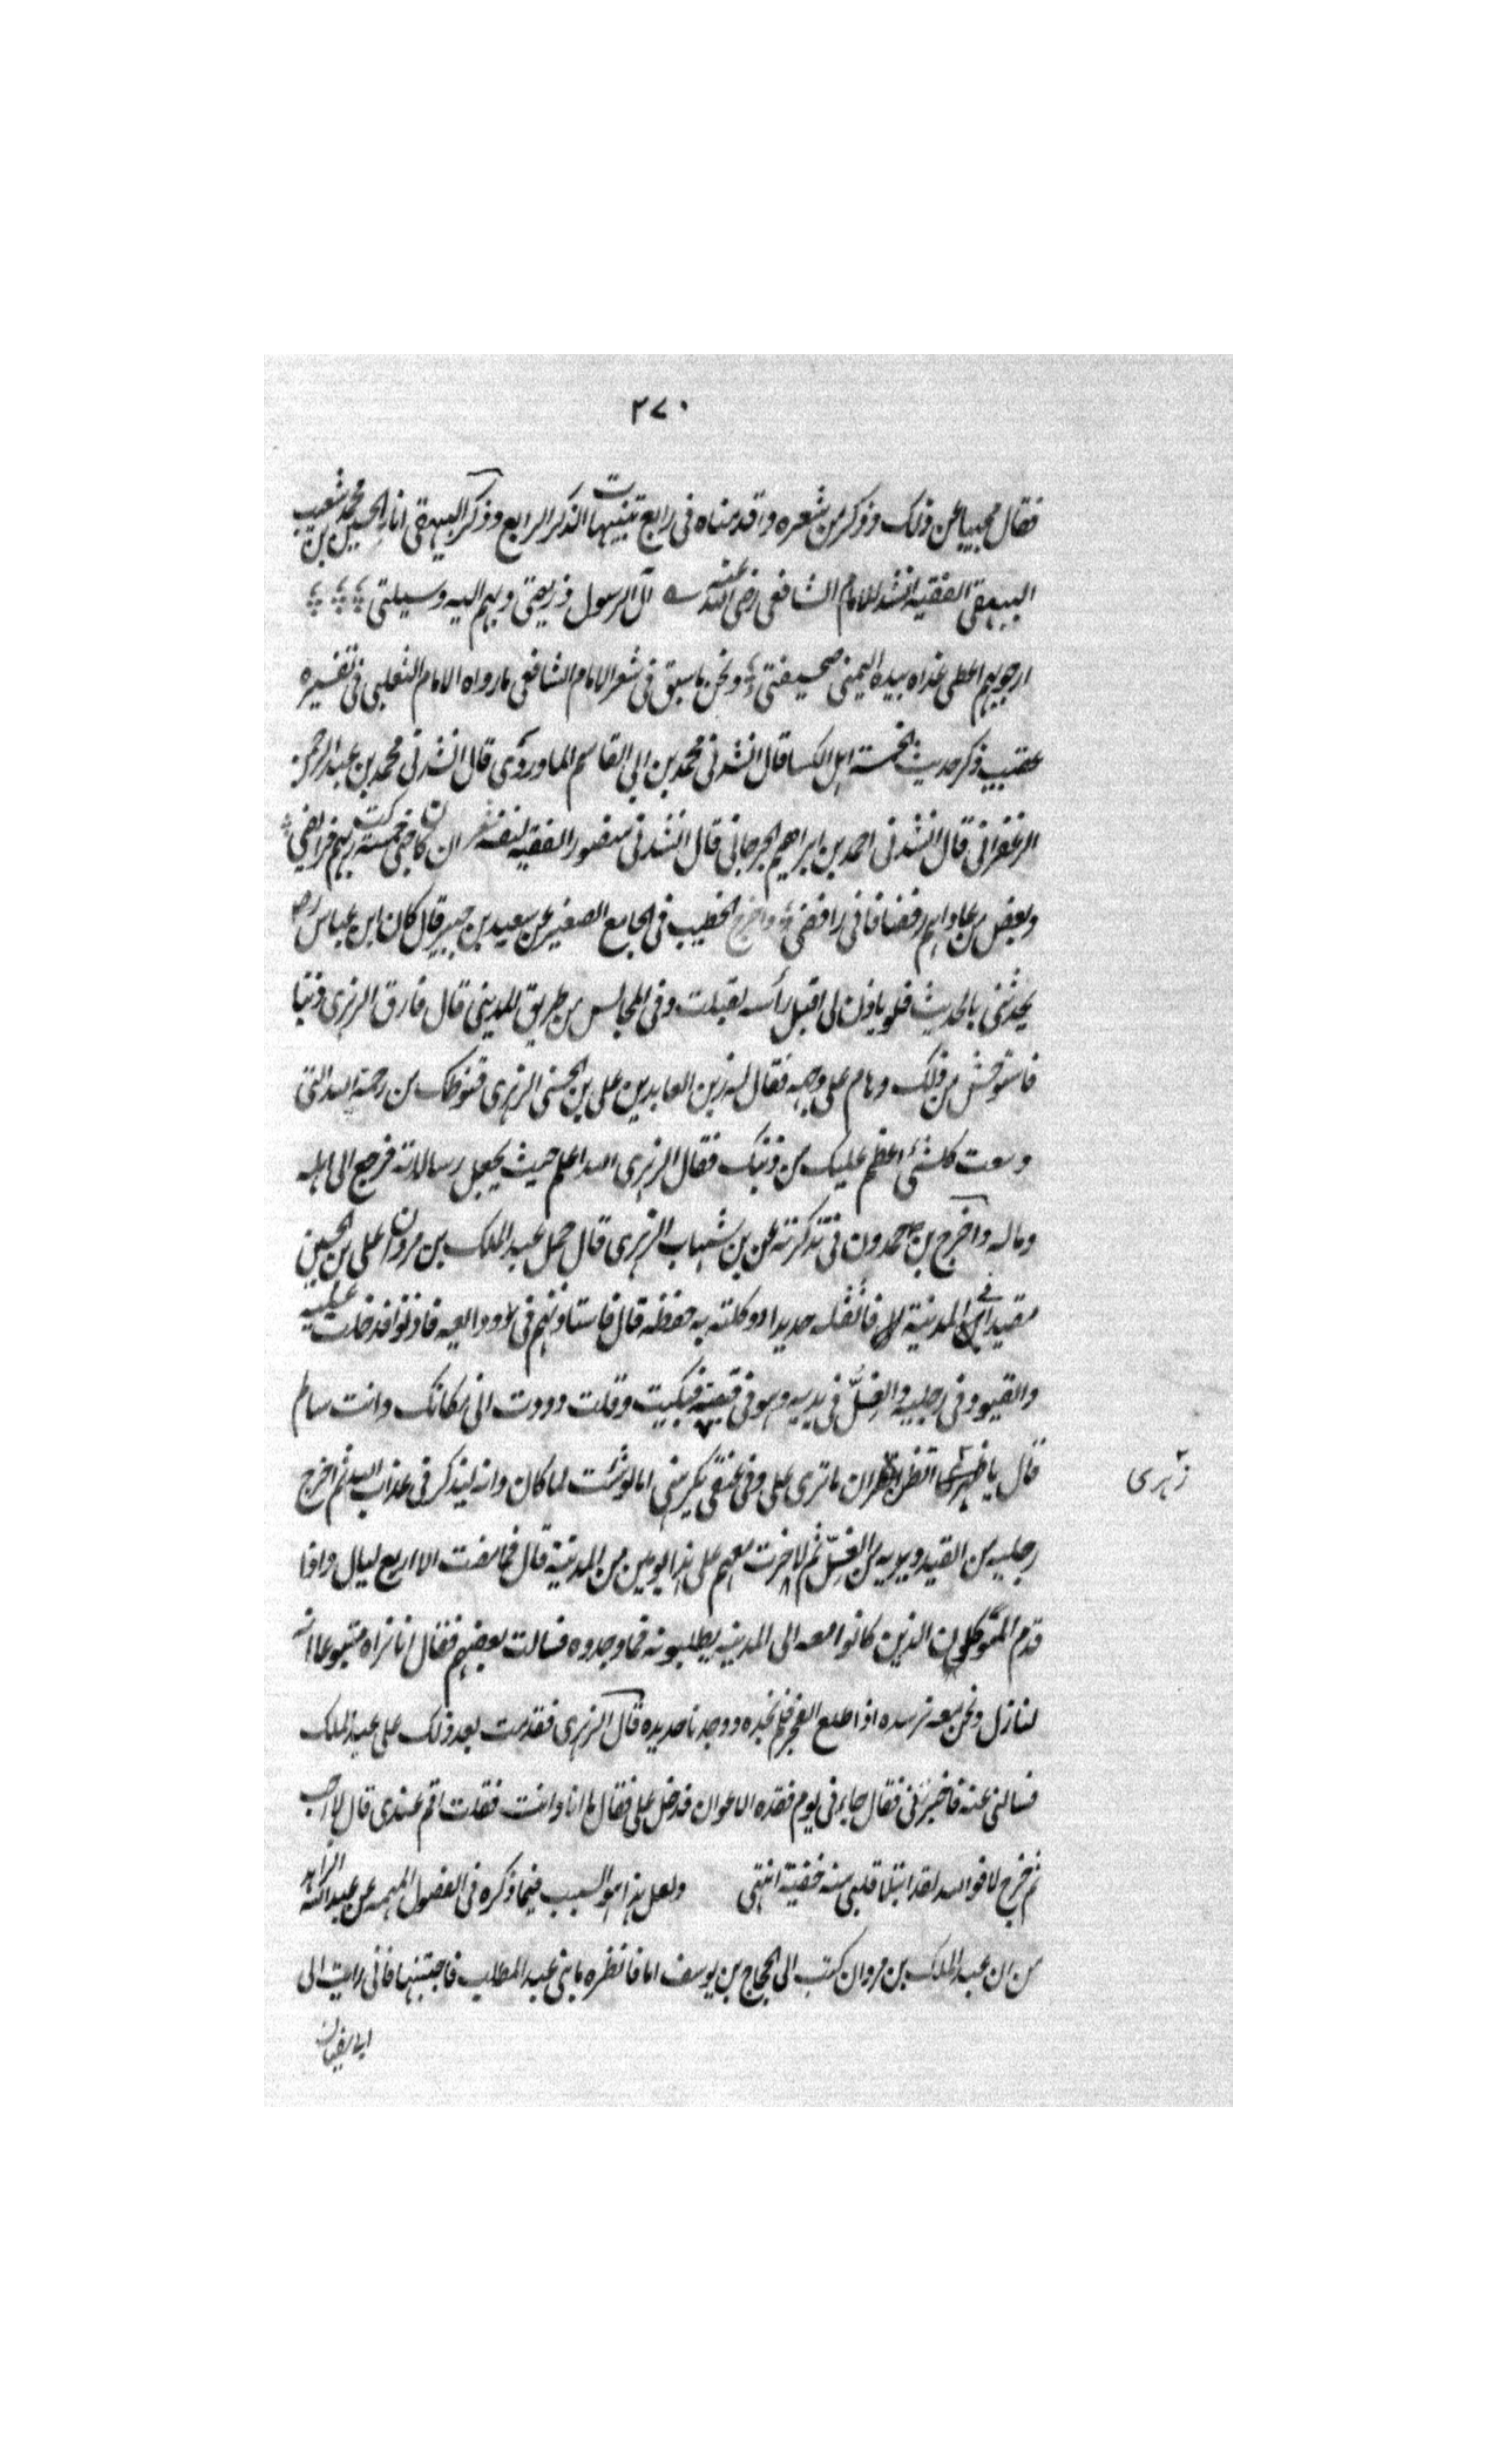 ٢٧٠
فقال مجيبا عن ذلك وذكر من شعره ما قدمناه في رابع تنبيهات الذكر الرابع وذكر البيهقي ان ابا الحسين بن محمد شعيب
البيهقي الفقيه انشد للامام الشافعي رضي الله عنه آل الرسول ذريعتي وهم اليه وسيلتي
ارجو بهم اعطى غدا بيده اليمنى صحيفتي ونحن ما سبق في شعر الامام الشافعي ما رواه الامام الثعلبي في تفسيره
عقيب ذكر حديث الخمسة اهل الكسا قال انشدني محمد بن ابي القاسم الماوردي قال انشدني محمد بن عبد الرحمن
الزعفراني قال انشدني احمد بن ابراهيم الجرجاني قال انشدني منصور الفقيه لنفسه ان كان حبي خمسة زكت بهم فرايضي
وبغض من عاداهم رفضا فاني رافضي واخرج الخطيب في الجامع الصغير عن سعيد بن جبير قال كان ابن عباس رض
يحدثني بالحديث فلو ياذن لي اقبل رأسه لقبلت وفي المجالس من طريق المديني قال قارف الزهري ذنبا
فاستوحش من ذلك وهام على وجهه فقال له زين العابدين علي بن الحسين الزهري قنوطك من رحمة الله التي
وسعت كل شئ اعظم عليك من ذنبك فقال الزهري الله اعلم حيث يجعل رسالاته فرجع الى اهله
وماله واخرج بن حمدون في تذكرته عن بن شهاب الزهري قال حمل عبد الملك بن مروان علي بن الحسين
مقيدا من المدينة فاثقله حديدا ووكلته به حفظه قال فاستاذنتهم في وداعيه فاذنوا فدخلت عليه
والقيود في رجليه والغل في يديه وهو في قبته فبكيت وقلت وددت اني مكانك وانت سالم
قال يا زهري اتظن ان ما ترى علي وفي عنقي يكربني اما لو شئت لما كان وانه ليذكرني عذاب الله ثم اخرج
زهري
رجليه من القيد ويديه من الغل ثم لا خرت معهم على هذا يومين من المدينة قال فما مضت الا اربع ليال واذا
قدم المتوكلون الذين كانوا معه الى المدينة يطلبونه فما وجدوه فسالت بعضهم فقال انا نراه متبوعا انه
لنازل ونحن معه نرصده اذا طلع الفجر فلم نجده ووجدنا حديده قال الزهري فقدمت بعد ذلك على عبد الملك
فسالني عنه فاخبرته فقال جاءني يوم فقده الاعوان فدخل علي فقال ما انا وانت فقلت اقم عندي قال لا احب
ثم خرج لا فوالله لقد امتلأ قلبي منه خفية انتهى ولعل هذا هو السبب فيما ذكره في الفصول المهمه عن عبد الله الزاهد
من ان عبد الملك بن مروان كتب الى الحجاج بن يوسف اما فانظر دما بني عبد المطلب فاجتنبها فاني رايت ال
ابي سفيان